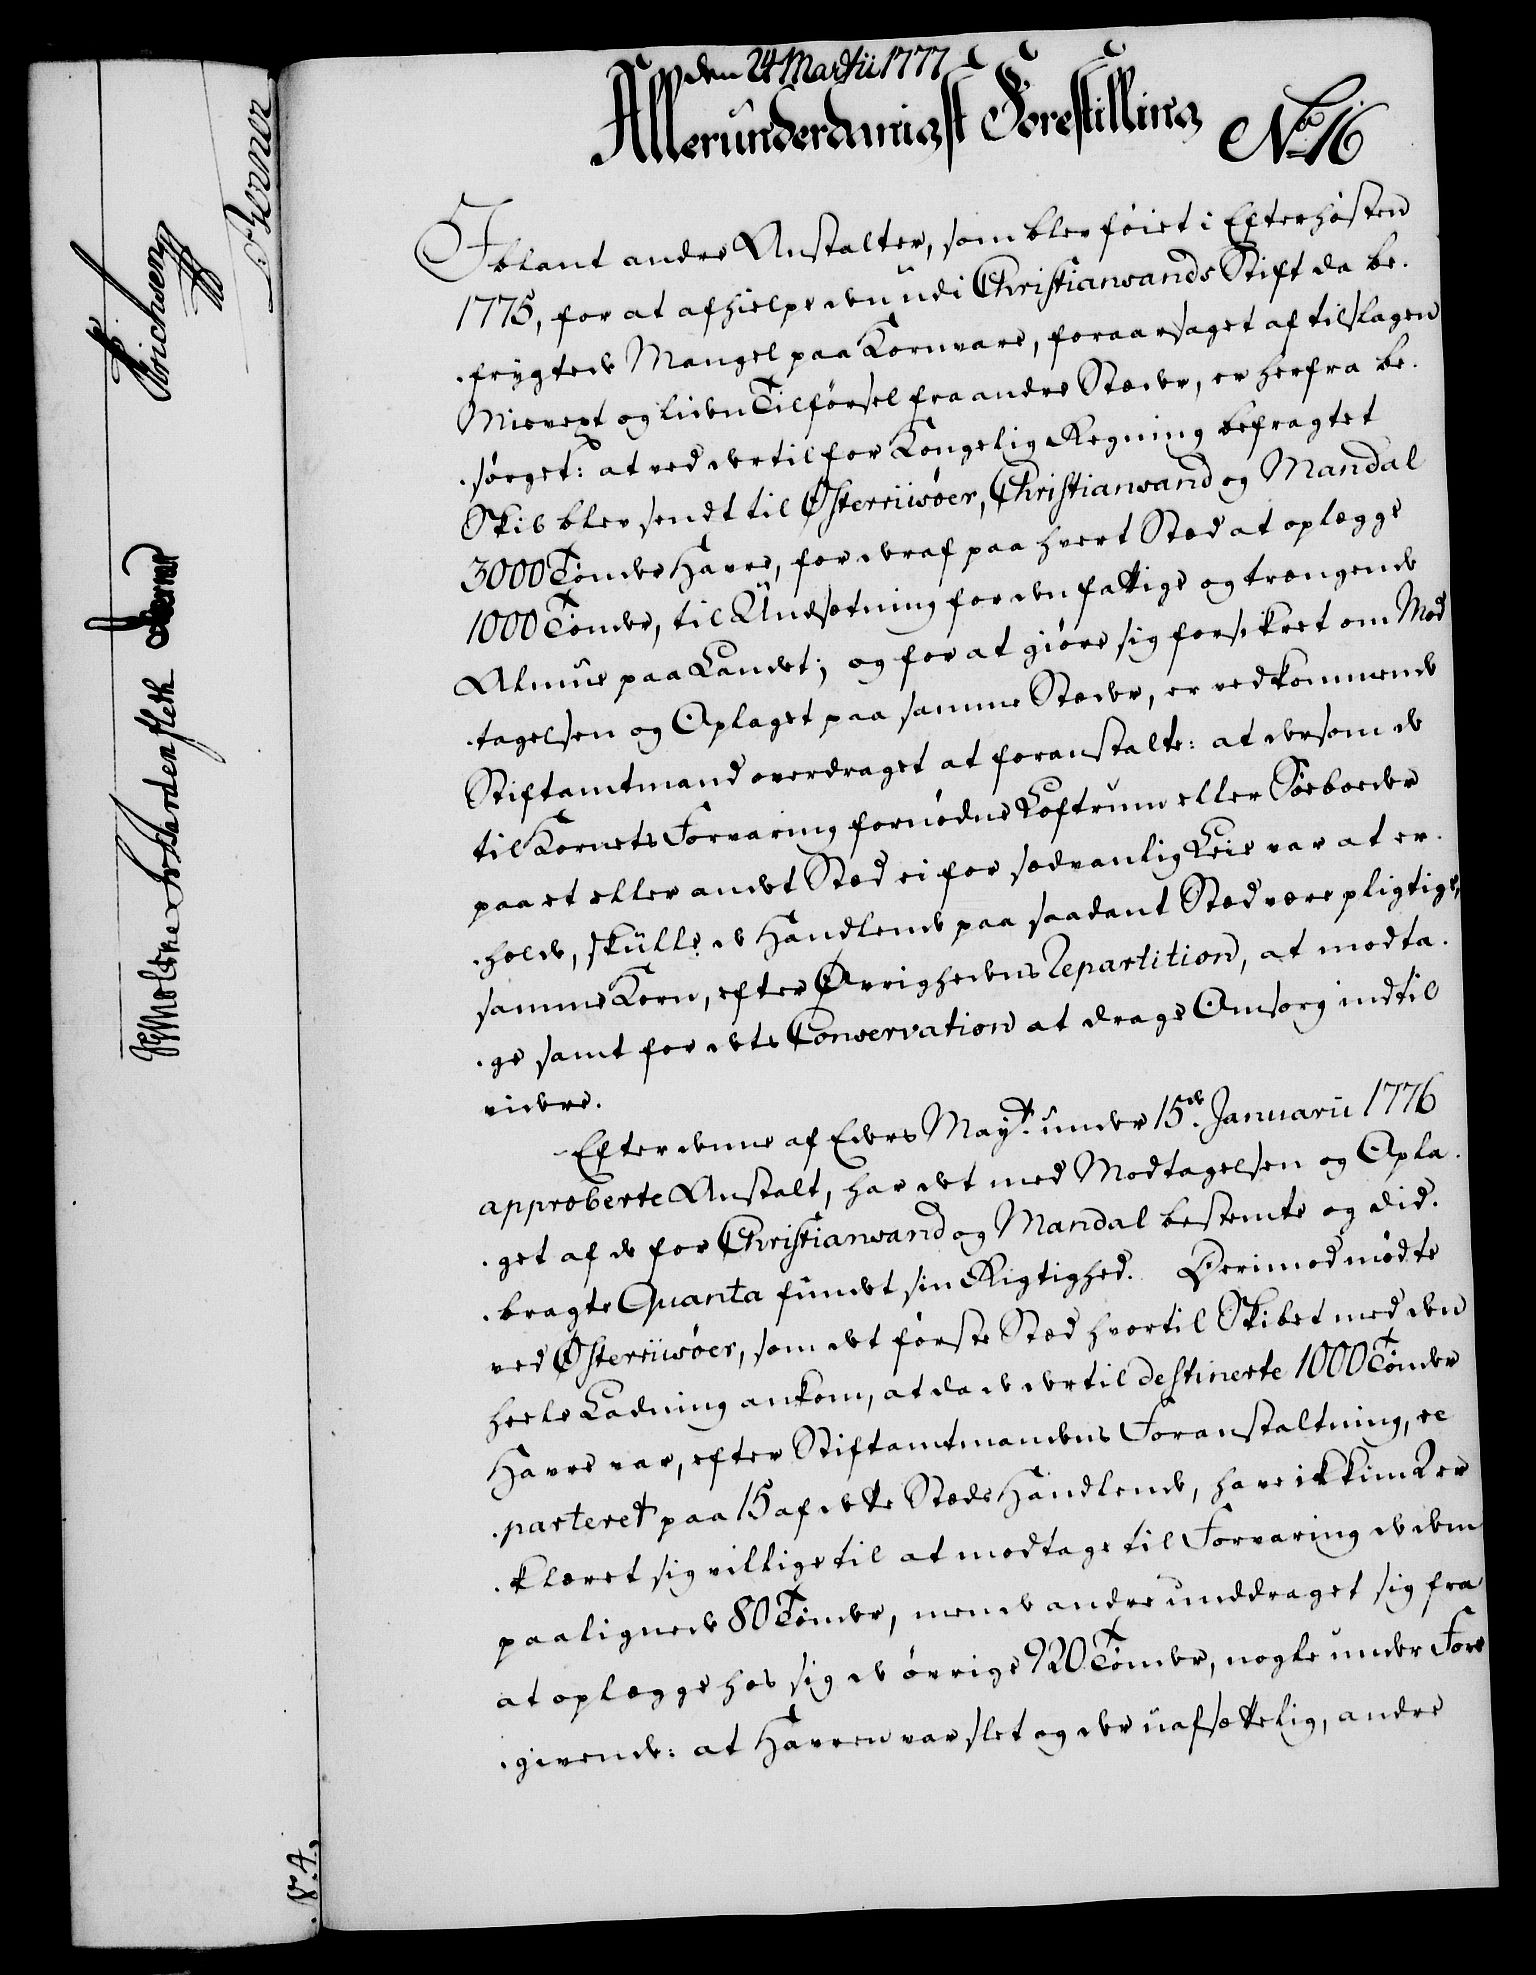 den 24 Martii 1777
Allerunderdanigst Forestilling No. 16
Iblant andre Anstalter, som blev føiet i Efterhøsten
1775, for at afhielpe den udi Christiansands Stift da be-
frygtede Mangel paa Kornvare, foraarsaget af tilslagen
Misvext og liden Tilførsel fra andre Stæder, er herfra be-
sørget: at ved dertil for Kongelig Regning befragtet
Skib blev sendt til Østerriisøer, Christiansand og Mandal
3000 Tønder Havre, for deraf paa hvert Stæd at oplægge
1000 Tønder, til Undsætning for den fattige og trængende
Almue paa Landet; og for at giøre sig forsikret om Mod-
tagelsen og Oplaget paa samme Stæder, er vedkommende
Stiftamtmand overdraget at foranstalte: at dersom de
til Kornets Forvaring fornødne Loftrum eller Søeboeder
paa et eller andet Stæd ei for sædvanlig Leie var at er-
holde, skulle de Handlende paa saadant Stæd være pligtige,
samme Korn, efter Øvrighedens Repartition, at modta-
ge samt for dets Conservation at drage Omsorg indtil
videre.
Efter denne af Eders Mayt. under 15de Januarii 1776
approberte Anstalt, har det med Modtagelsen og Opla-
get af de for Christiansand og Mandal bestemte og did-
bragte Quanta fundet sin Rigtighed. Derimod mødte
ved Østerriisøer, som det første Stæd hvortil Skibet med den
heele Ladning ankom, at da de dertil destinerte 1000 Tønder
Havre var, efter Stiftamtmandens Foranstaltning, re-
parteret paa 15 af dette Stæds Handlende, have ikkun 2 er-
klæret sig villige til at modtage til Forvaring de dem
paalignede 80 Tønder, men de andre unddraget sig fra
at oplægge hos sig de øvrige 920 Tønder, nogle under Fore-
givende: at Havren var slet og der uafsættelig, andre